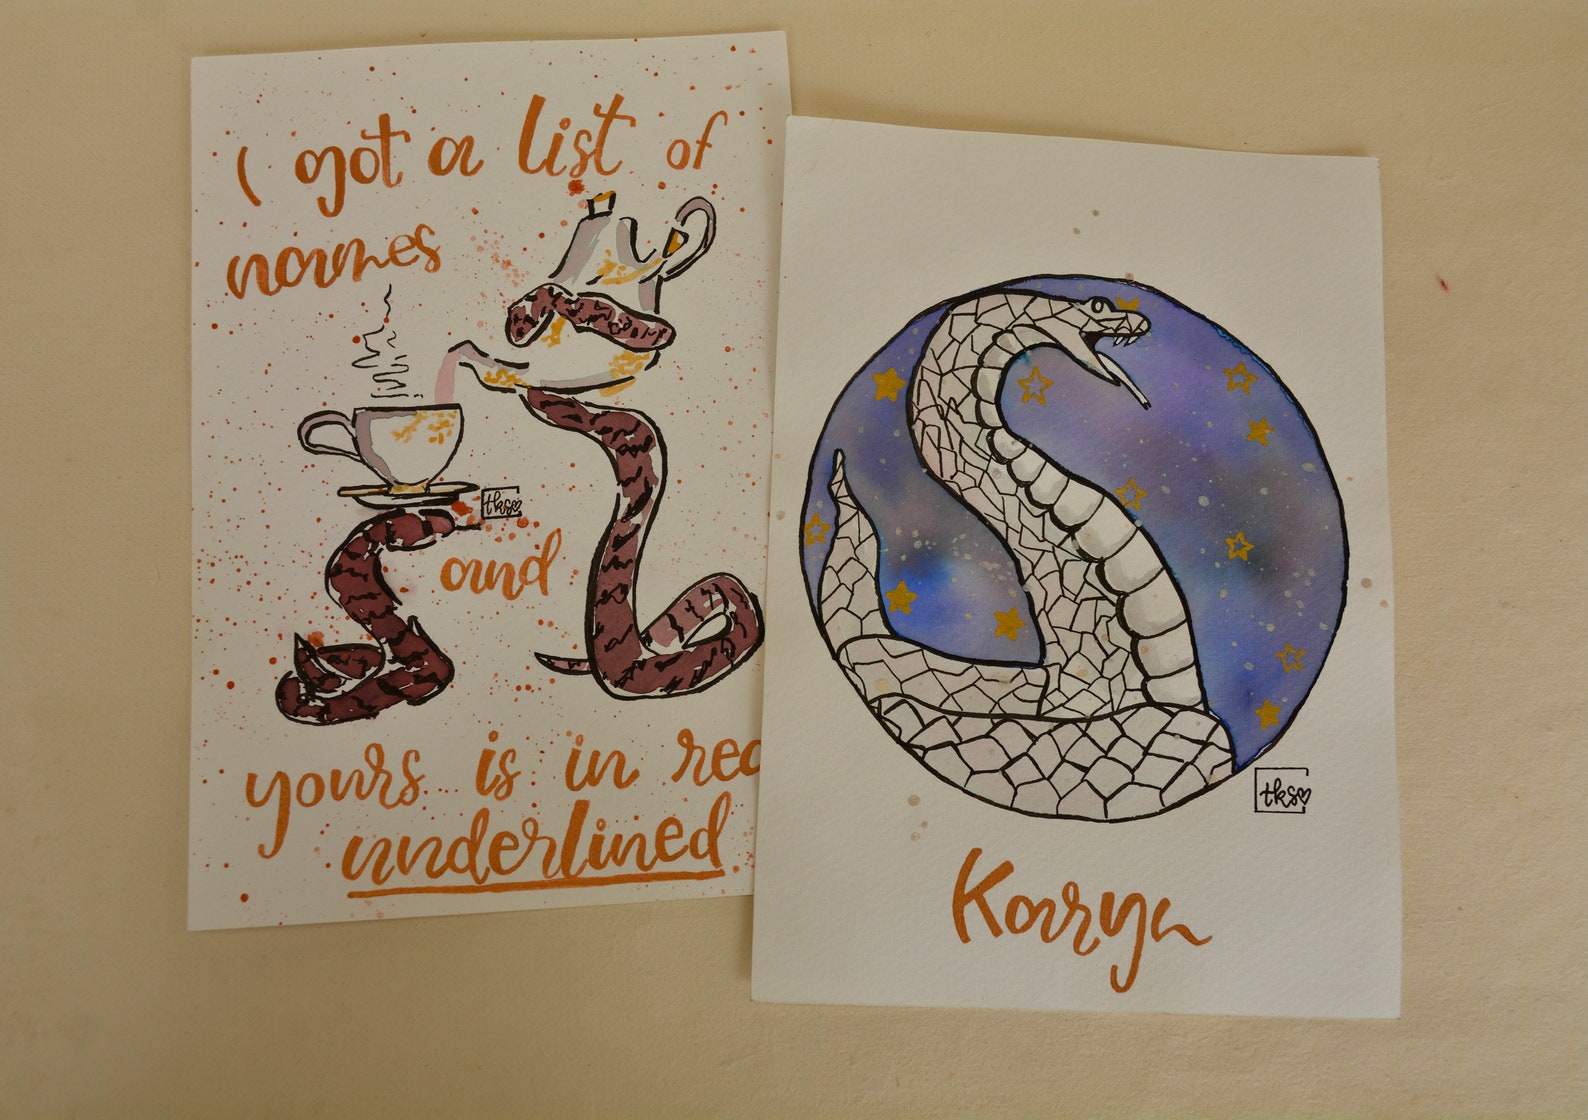 I got a list of
names
tks
and
yours is in red
underlined
tks
Karyn